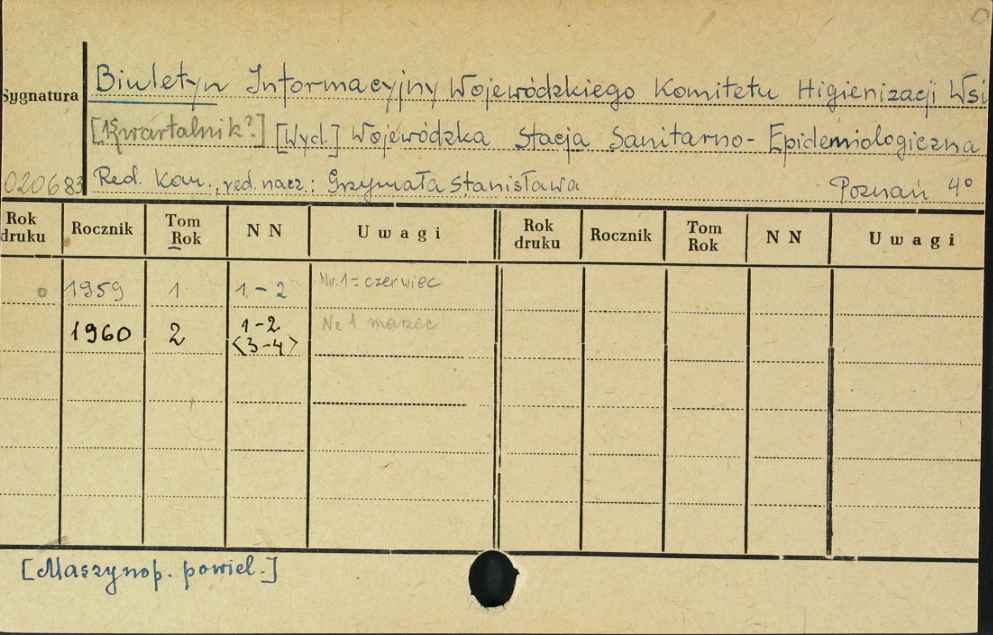 Sygnatura
Biuletyn Informacyjny Wojewódzkiego Komitetu Higienizacji Wsi
[Kwartalnik?] [Wyd.] Wojewódzka Stacja Sanitarno-Epidemiologiczna
020683 Red. Kom., red. nacz.: Grzymała Stanisława Poznań 4°
Rok druku Rocznik Tom Rok NN Uwagi Rok druku Rocznik Tom Rok NN Uwagi
1959 1 1-2 Nr. 1 = czerwiec
1960 2 1-2 Nr 1 marzec
<3-4>
[Maszynop. powiel.]